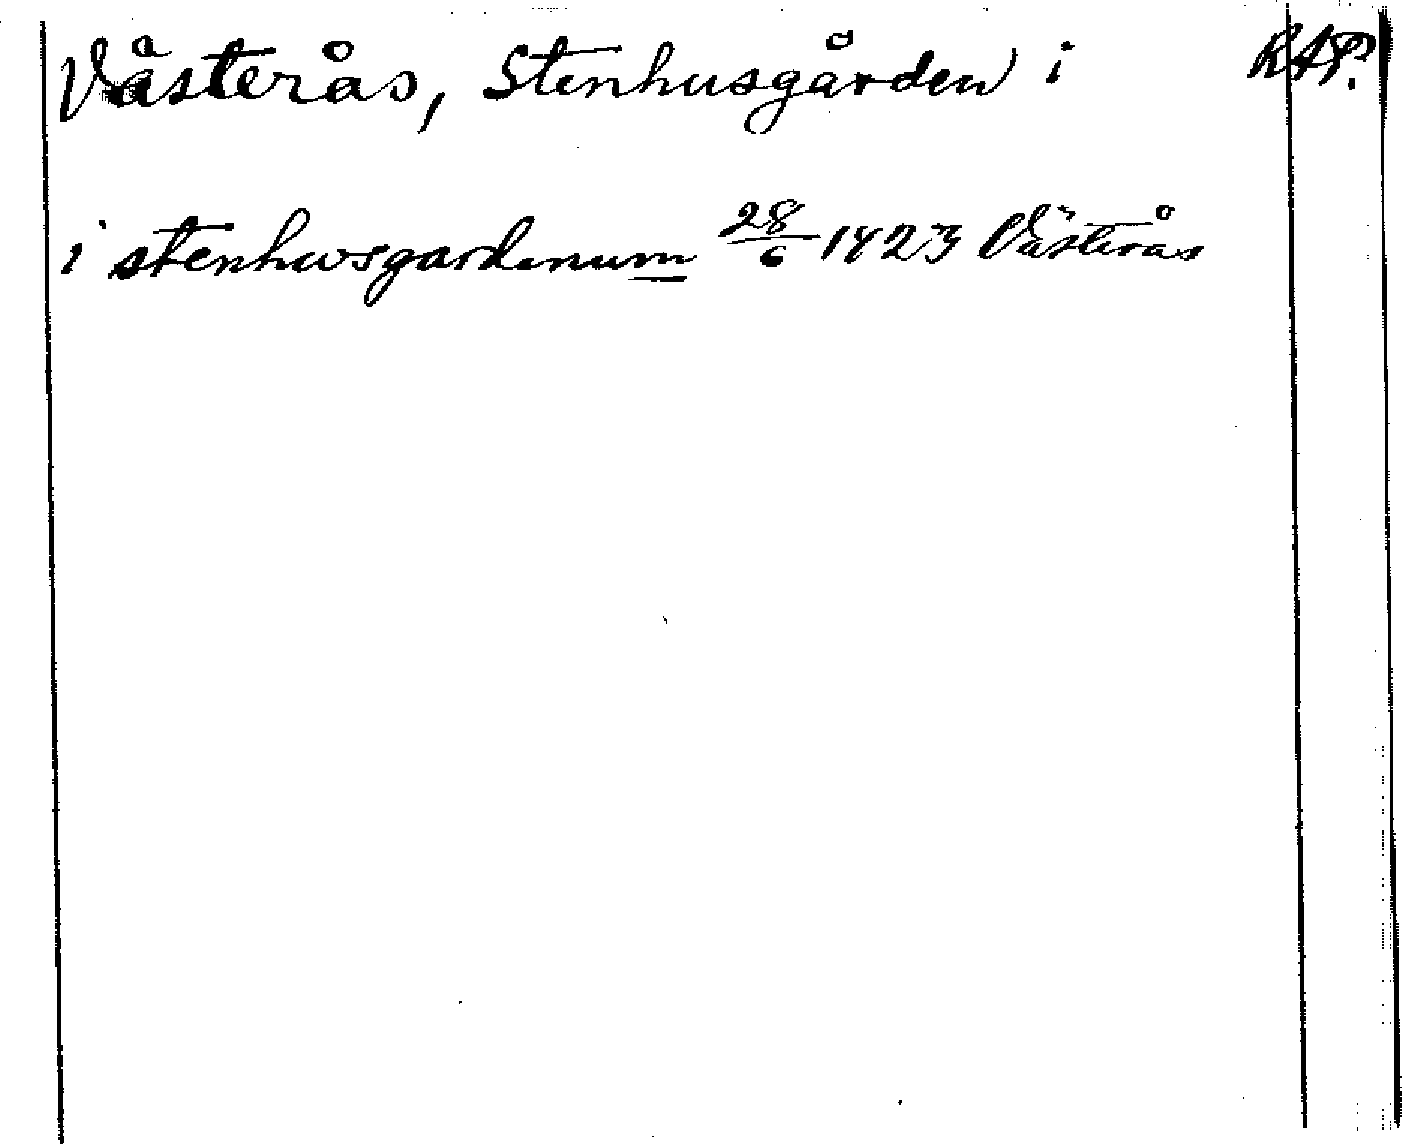 Västerås, Stenhusgården i RAP.
i stenhusgardenum 28/6 1423 Västerås